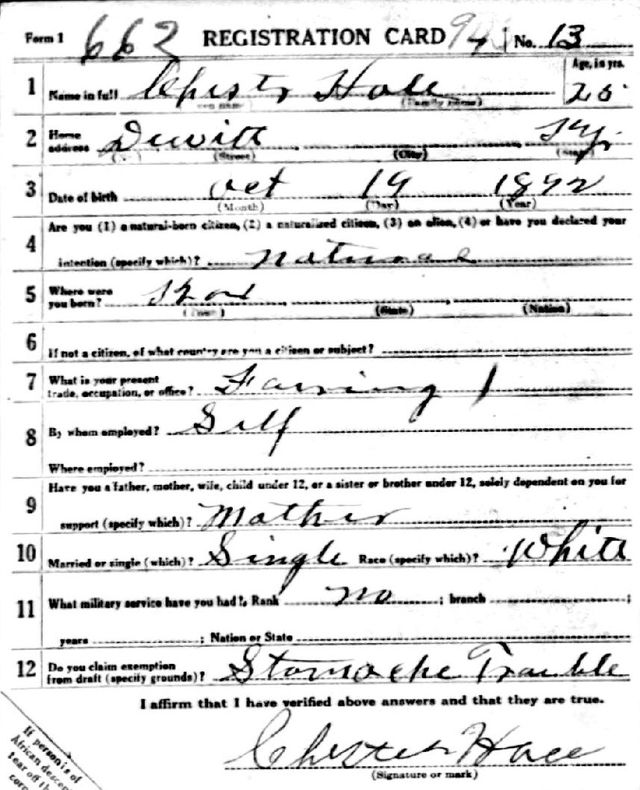 Form 1 662 REGISTRATION CARD No. 13
1 Name in full Chester Hall (Family name) Age, in yrs. 25
2 Home address Dewitt Ky.
(Street) (City) (State)
3 Date of birth Oct 19 1892
(Month) (Day) (Year)
4 Are you (1) a natural-born citizen, (2) a naturalized citizen, (3) an alien, (4) or have you declared your
intention (specify which)? natural
5 Where were you born?
(Town) (State) (Nation)
6 If not a citizen, of what country are you a citizen or subject?
7 What is your present trade, occupation, or office? Farming
8 By whom employed? Self
Where employed?
9 Have you a father, mother, wife, child under 12, or a sister or brother under 12, solely dependent on you for
support (specify which)? Mother
10 Married or single (which)? Single Race (specify which)? White
11 What military service have you had? Rank no ; branch ;
years ; Nation or State
12 Do you claim exemption from draft (specify grounds)? Stomache Trouble
I affirm that I have verified above answers and that they are true.
Chester Hall
(Signature or mark)
If person is of
African descent
tear off